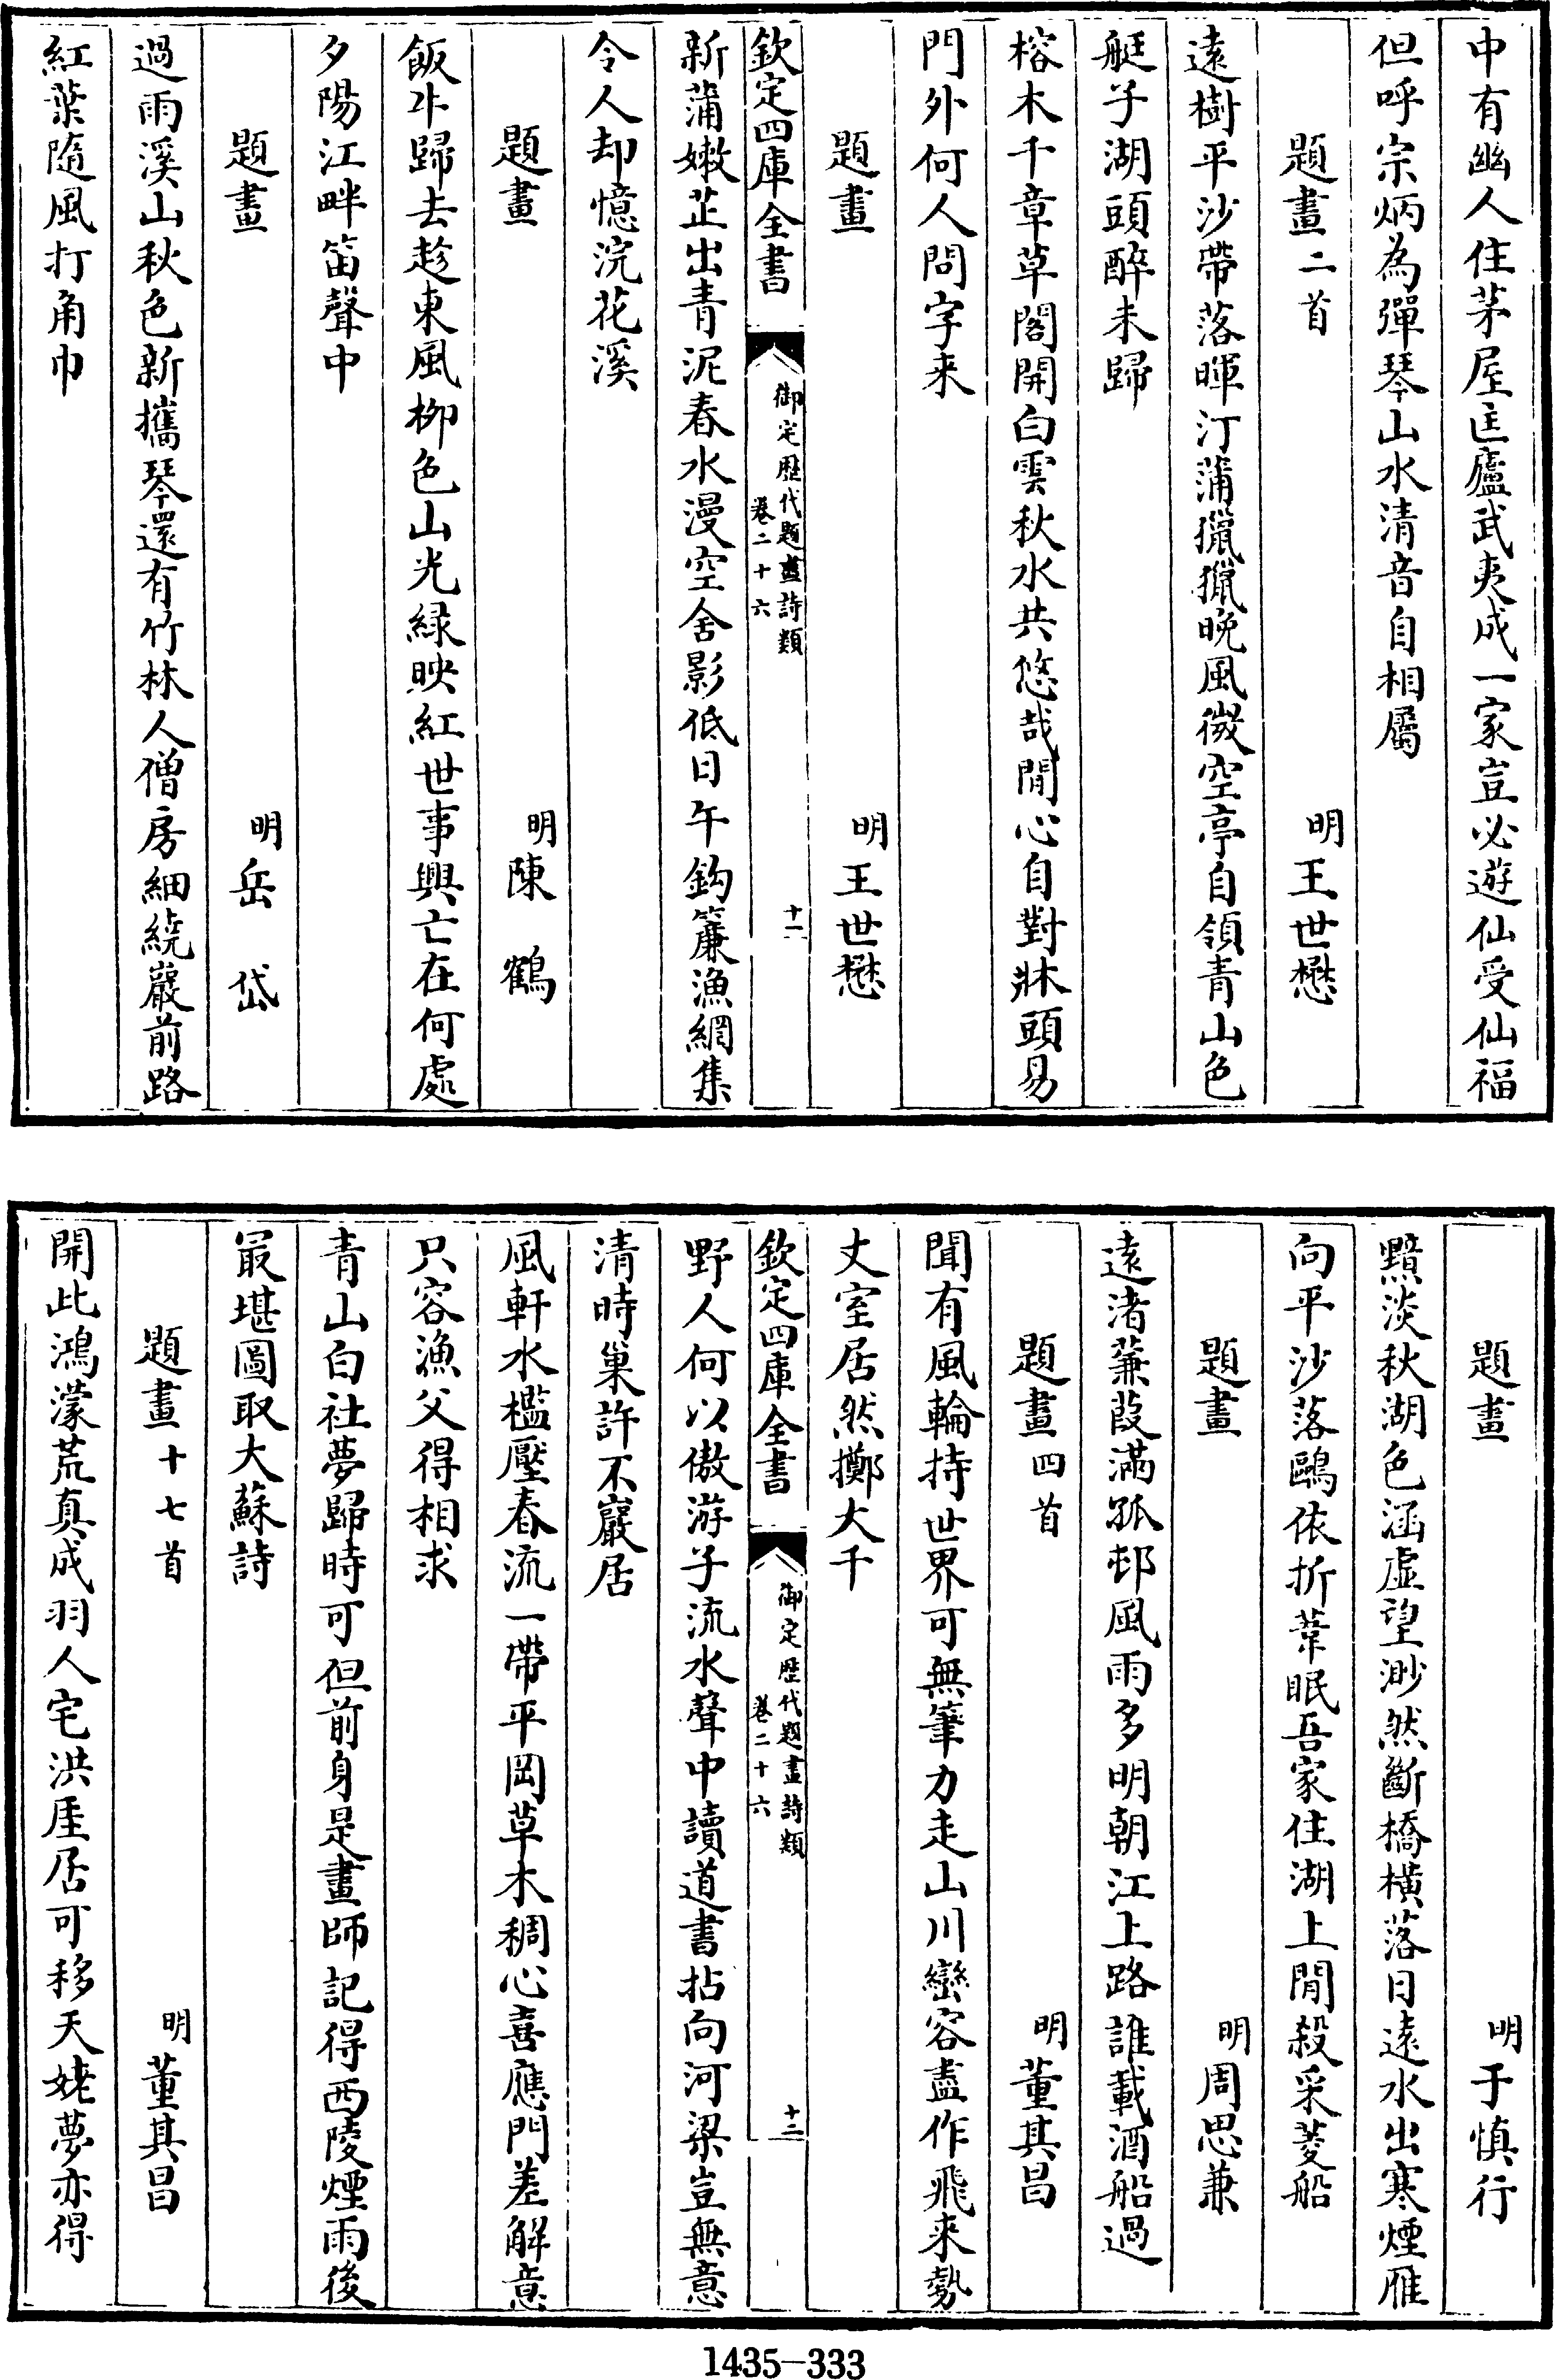 中有幽人住茅屋匡廬武夷成一家豈必遊仙受仙福
但呼宗炳為彈琴山水清音自相屬
題畫二首 明王世懋
遠樹平沙帶落暉汀蒲獵獵晚風微空亭自領青山色
艇子湖頭醉未歸
榕木千章草閣開白雲秋水共悠哉閒心自對牀頭易
門外何人問字来
題畫 明王世懋
欽定四庫全書 御定歴代題畫詩類 卷二十六 十一
新蒲嫩芷出青泥春水漫空舍影低日午鈎簾漁網集
令人却憶浣花溪
題畫 明陳鶴
飯牛歸去趁東風柳色山光緑映紅世事興亡在何處
夕陽江畔笛聲中
題畫 明岳岱
過雨溪山秋色新攜琴還有竹林人僧房細繞巖前路
紅葉隨風打角巾
題畫 明于慎行
黯淡秋湖色涵虚望渺然斷橋橫落日遠水出寒煙雁
向平沙落鷗依折葦眠吾家住湖上閒殺采菱船
題畫 明周思兼
遠渚蒹葭滿孤邨風雨多明朝江上路誰載酒船過
題畫四首 明董其昌
聞有風輪持世界可無筆力走山川巒容盡作飛来勢
丈室居然擲大千
欽定四庫全書 御定歴代題畫詩類 卷二十六 十二
野人何以傲游子流水聲中讀道書拈向河梁豈無意
清時巢許不巖居
風軒水檻壓春流一帶平岡草木稠心喜應門差解意
只容漁父得相求
青山白社夢歸時可但前身是畫師記得西陵煙雨後
最堪圖取大蘇詩
題畫十七首 明董其昌
開此鴻濛荒真成羽人宅洪厓居可移天姥夢亦得
1435-333